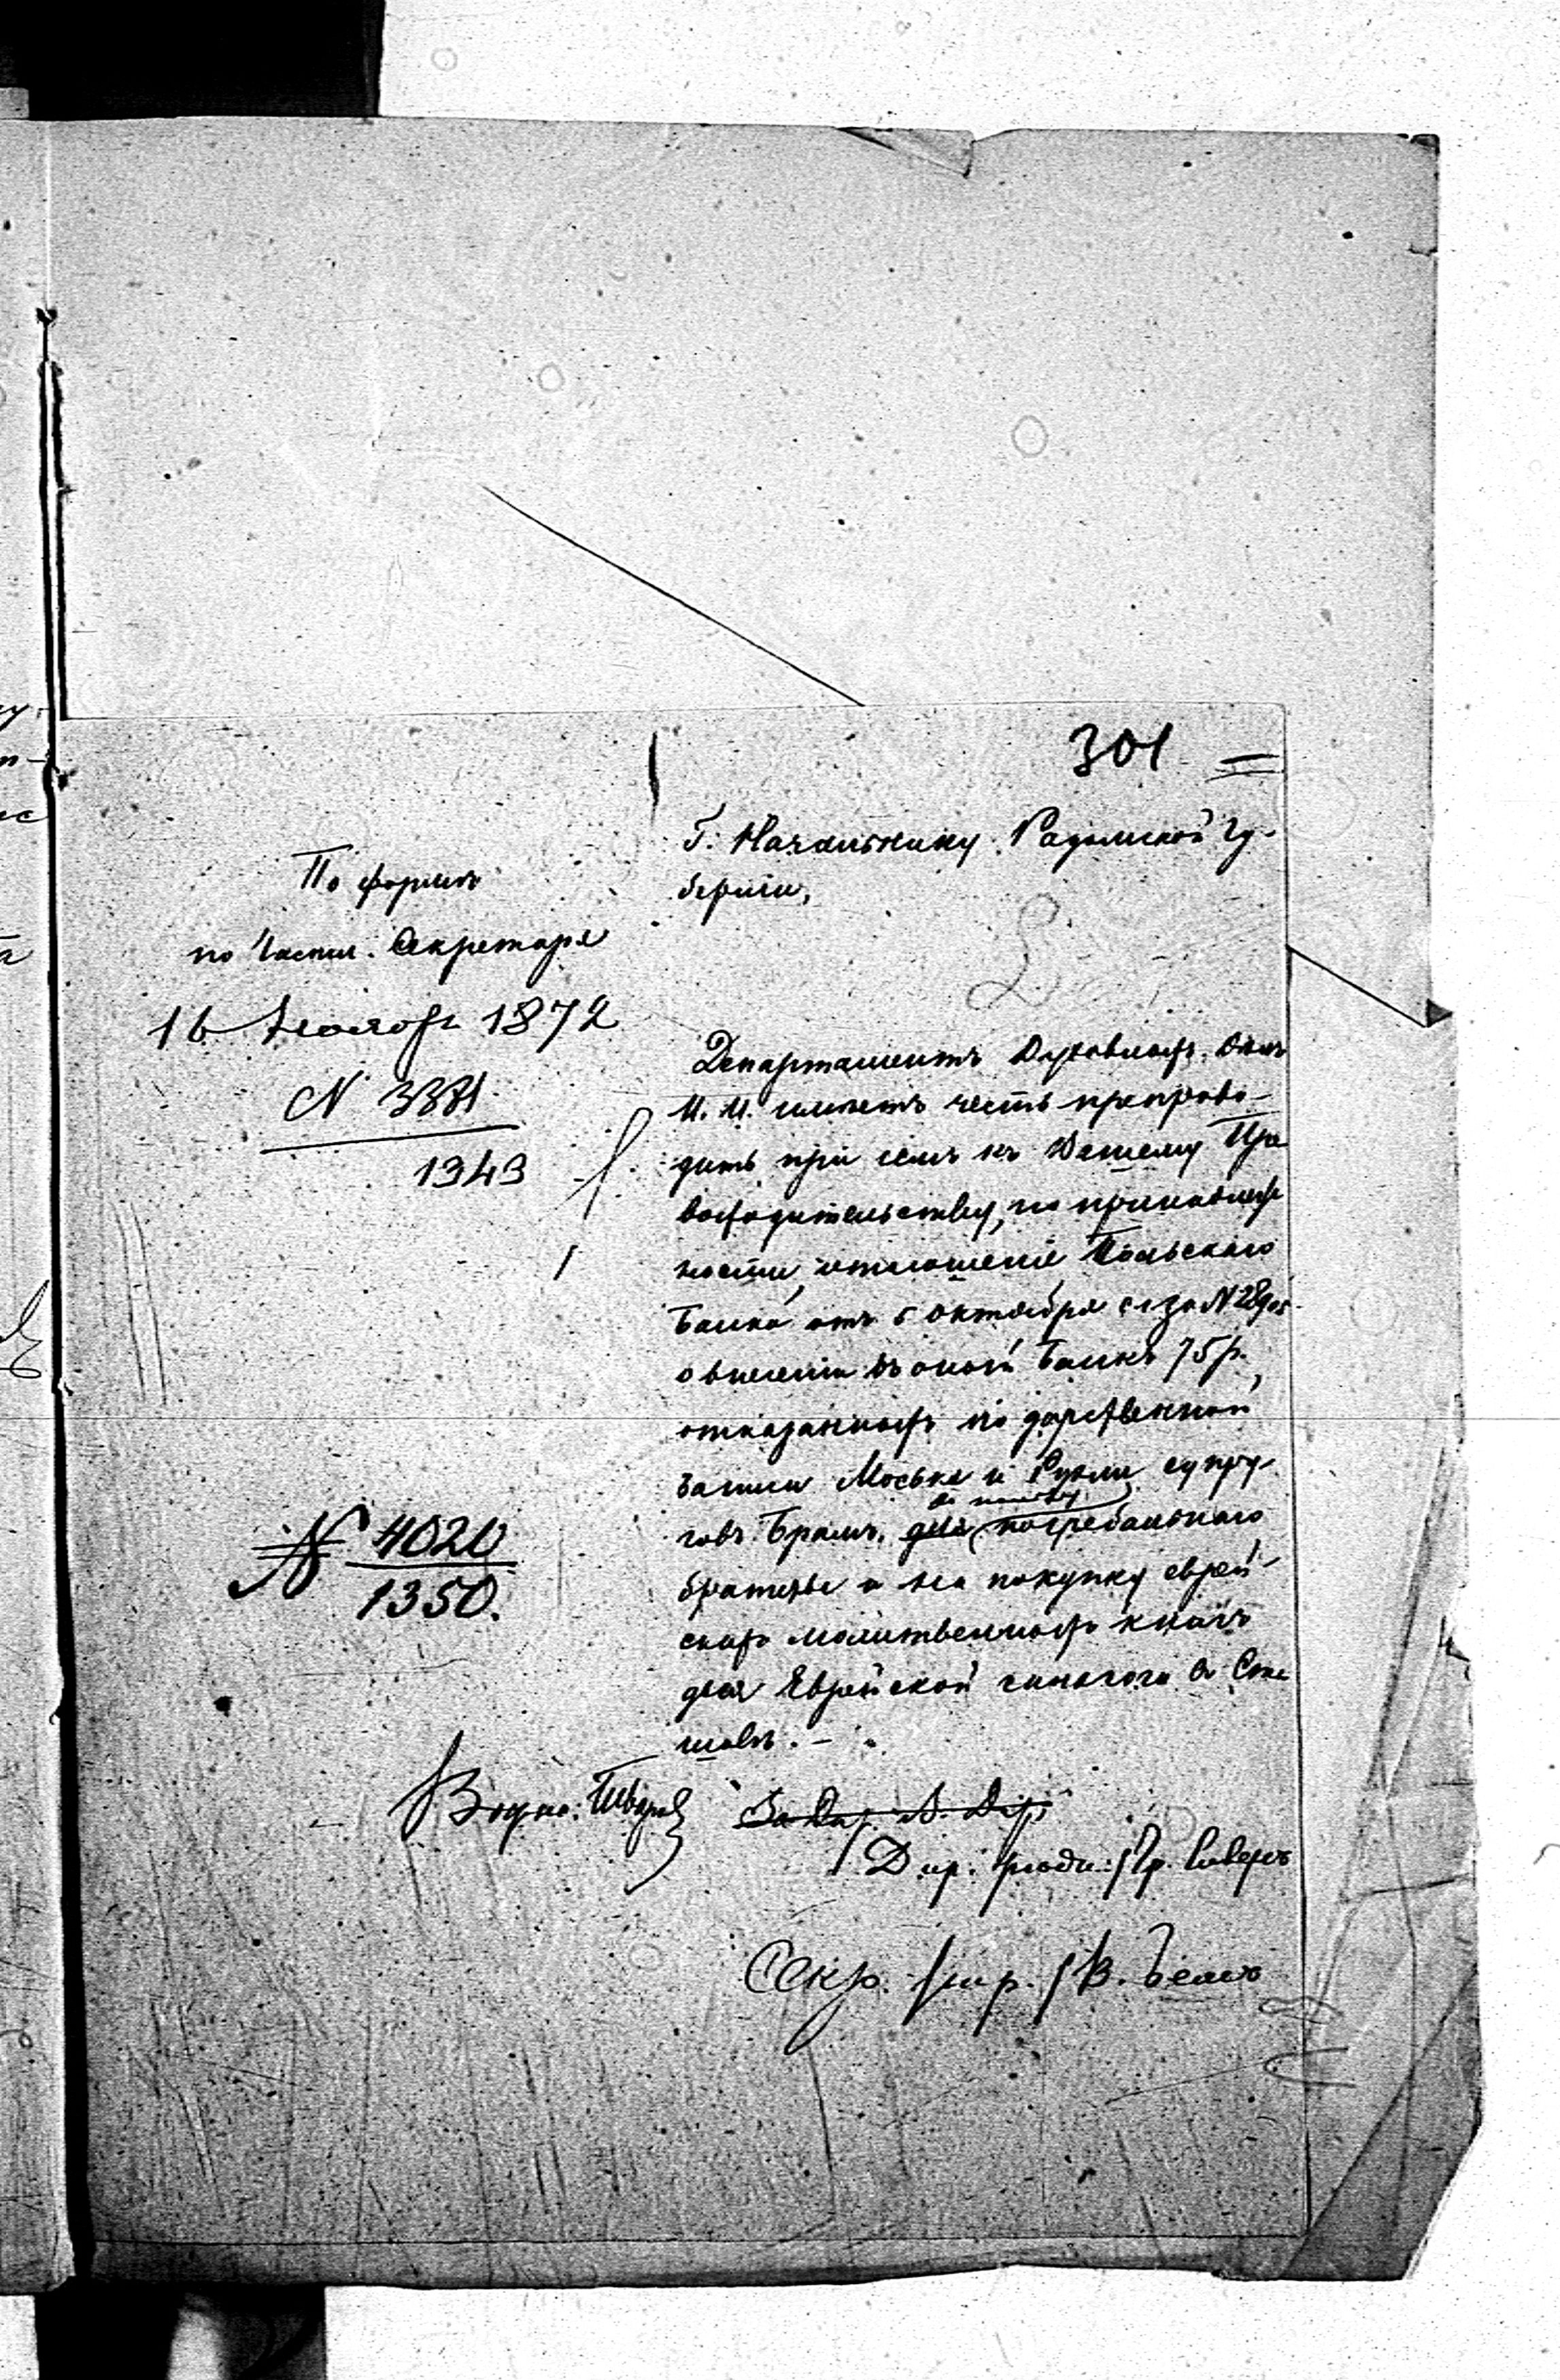 301
По формѣ
по Части. Секретаря
16 Ноября 1872
N 3381
1343
N 4020
1350.
Г. Начальнику Радомской Гу-
берніи,
Департаментъ Духовныхъ Дѣлъ
И. И. имѣетъ честь препрово-
дить при семъ къ Вашему Пре
восходительству, по принадлеж
ности, отношеніе Польскаго
Банка отъ 5 Октября за N
о внесеніи въ оный Банкъ 75 р.,
отказанныхъ по дарственной
записи Моська и супру-
говъ Брамъ, для погребальнаго
братства и на покупку еврей-
скихъ молитвенныхъ книгъ
для Еврейской синагоги въ
шовѣ. -
За Дир.
Дир.
Секр.